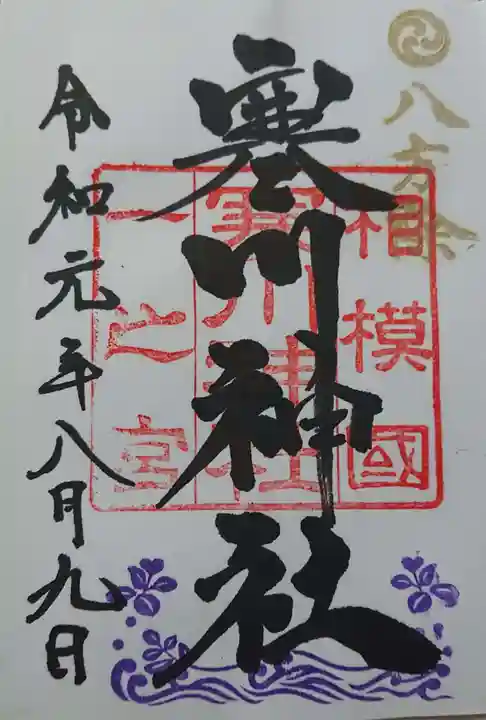 八方除
寒川神社
相模國
寒川神社
一之宮
令和元年八月九日